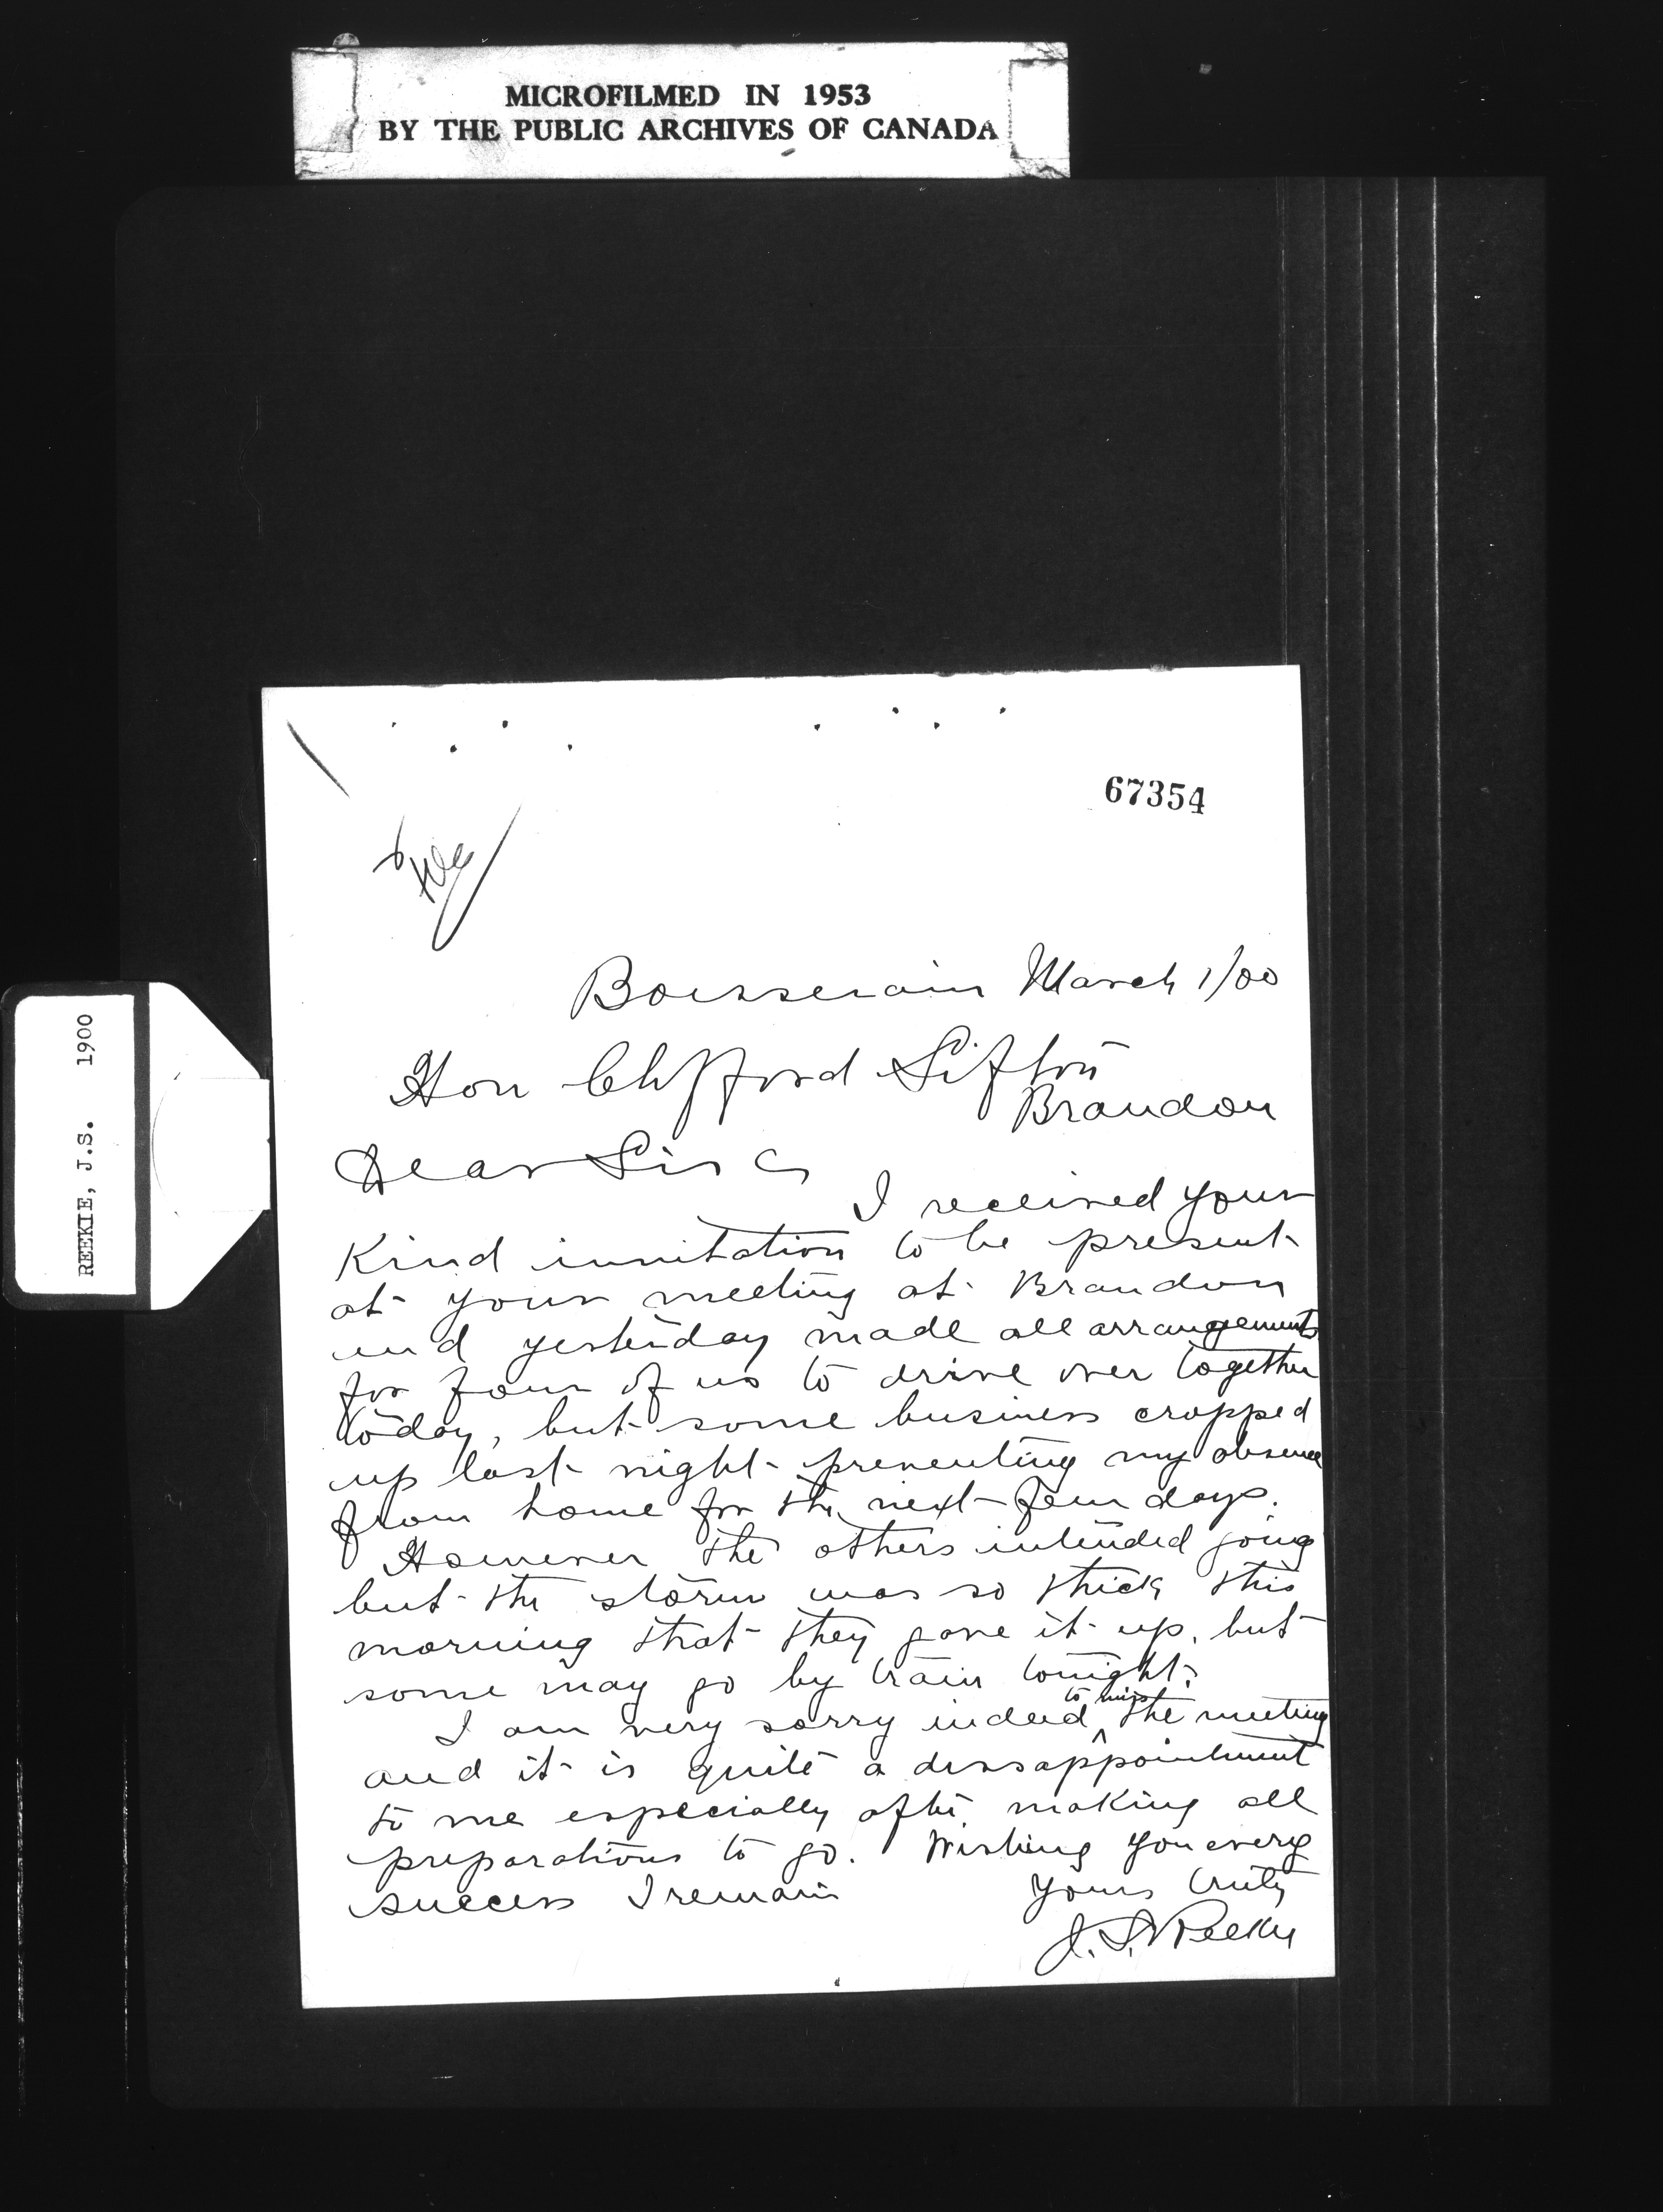 MICROFILMED IN 1953
BY THE PUBLIC ARCHIVES OF CANADA
REEKIE, J.S. 1900
67354
Boissevain March 1/00
Hon Clifford Sifton
Brandon
Dear Sir
I received your
Kind invitation to be present
at your meeting at Brandon
and yesterday made all arrangements
for four of us to drive over together
today, but some business cropped
up last night preventing my absence
from home for the next few days.
However the others intended going
but the storm was so thick this
morning that they gave it up, but
some may go by train tonight.
I am very sorry indeed to miss the meeting
and it is quite a dissappointment
to me especially after making all
preparations to go. Wishing you every
success I remain
Yours truly
J. S. Reekie